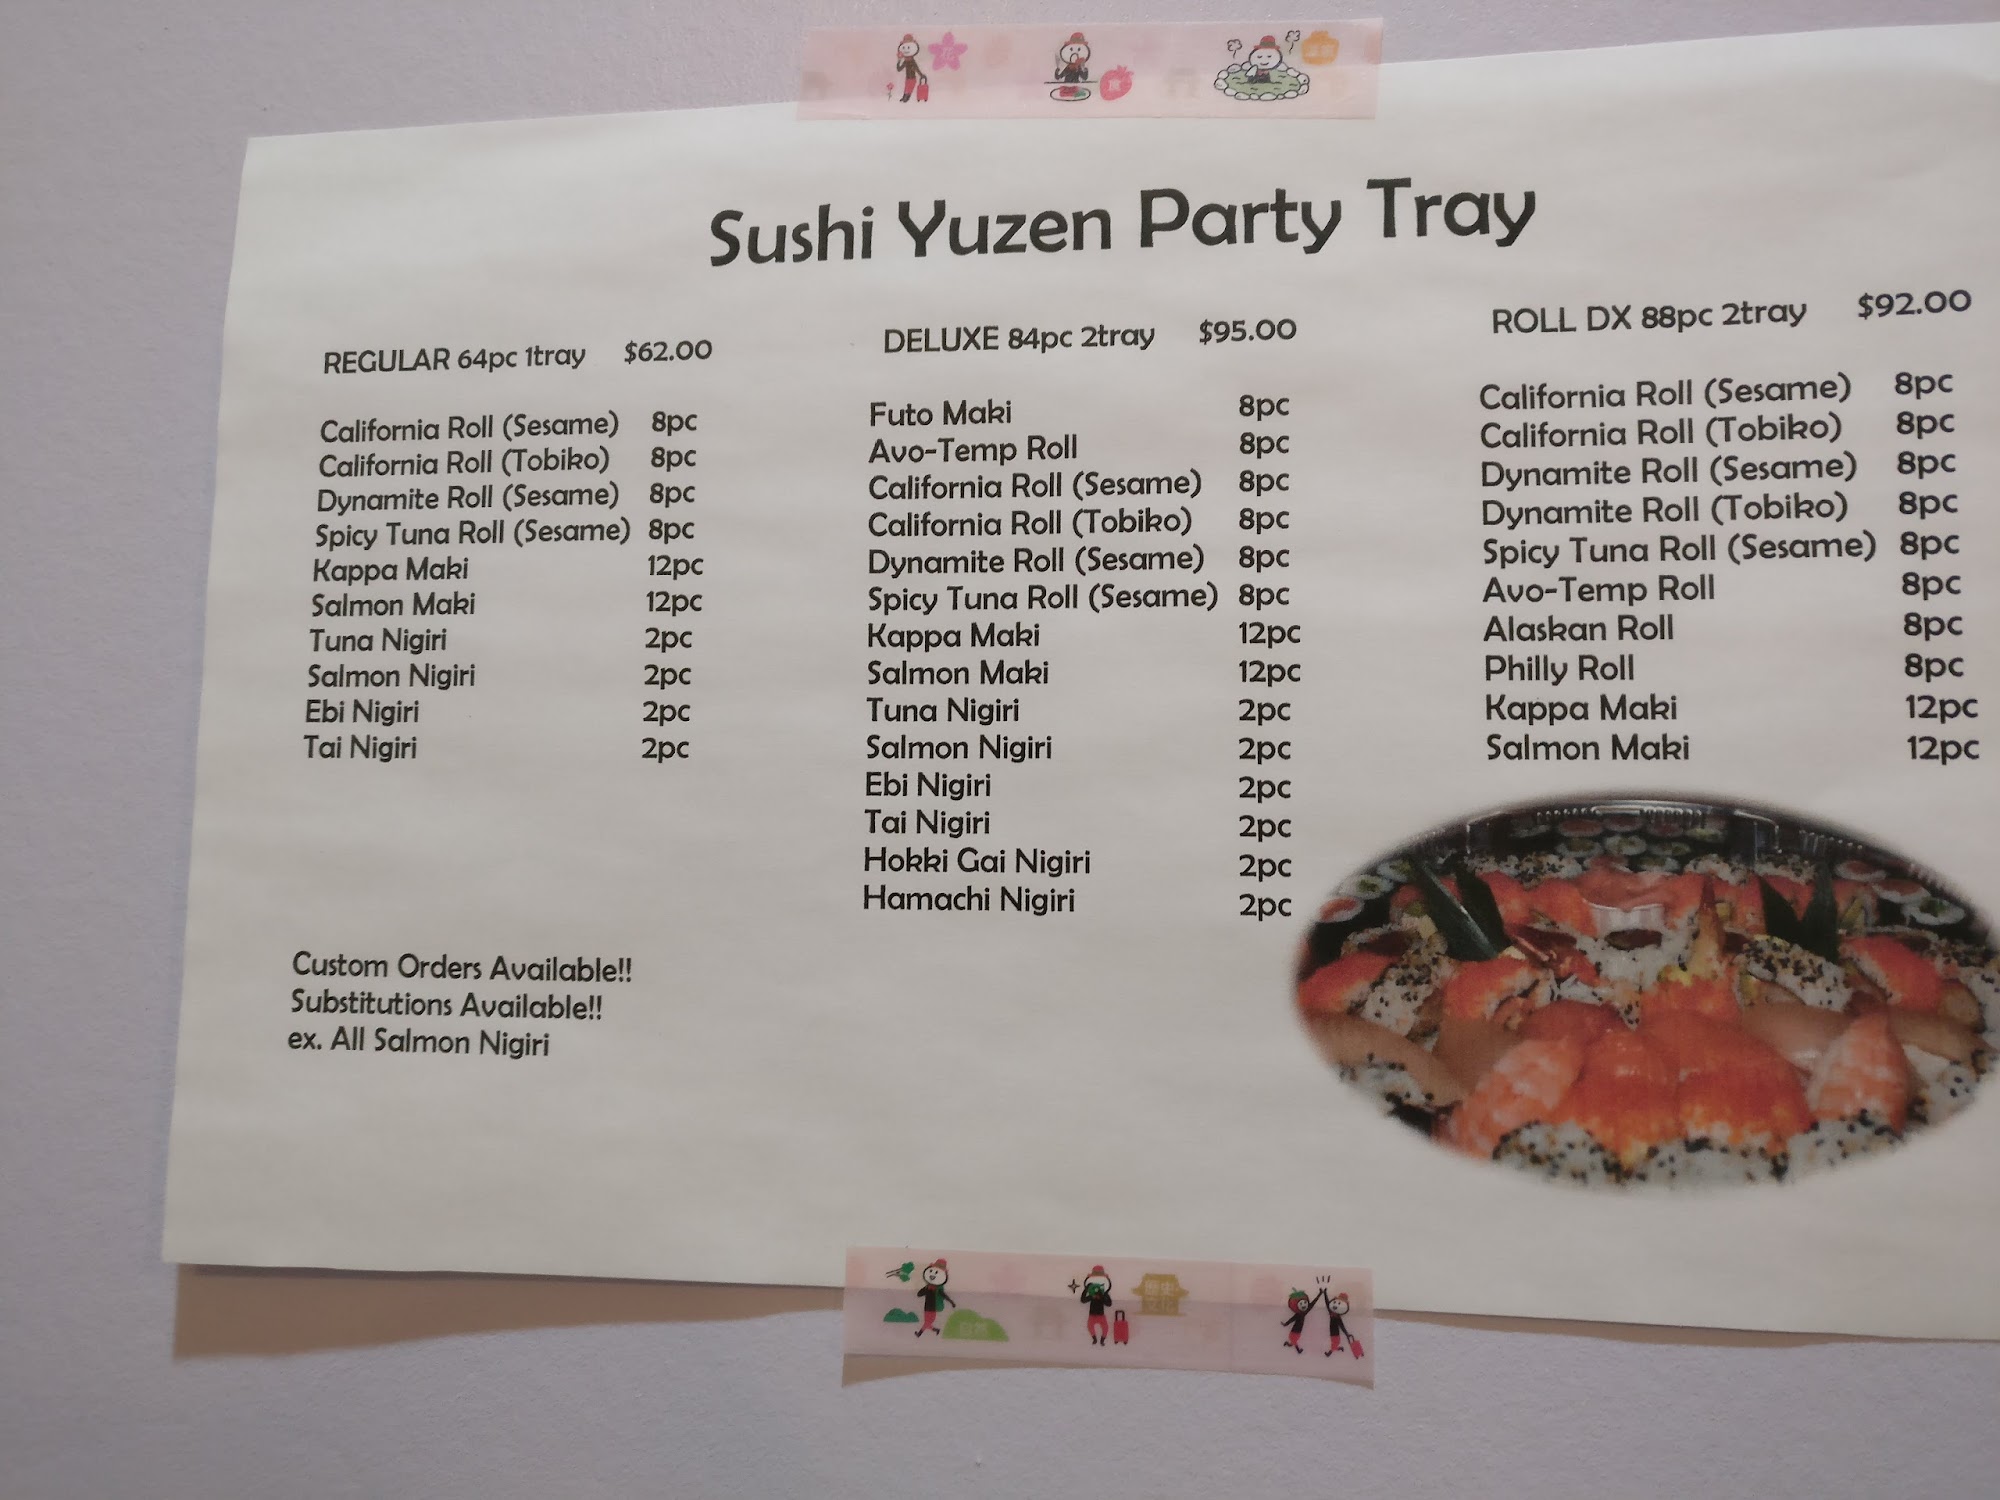 花
食
温泉
Sushi Yuzen Party Tray
REGULAR 64pc 1tray $62.00
California Roll (Sesame) 8pc
California Roll (Tobiko) 8pc
Dynamite Roll (Sesame) 8pc
Spicy Tuna Roll (Sesame) 8pc
Kappa Maki 12pc
Salmon Maki 12pc
Tuna Nigiri 2pc
Salmon Nigiri 2pc
Ebi Nigiri 2pc
Tai Nigiri 2pc
Custom Orders Available!!
Substitutions Available!!
ex. All Salmon Nigiri
DELUXE 84pc 2tray $95.00
Futo Maki 8pc
Avo-Temp Roll 8pc
California Roll (Sesame) 8pc
California Roll (Tobiko) 8pc
Dynamite Roll (Sesame) 8pc
Spicy Tuna Roll (Sesame) 8pc
Kappa Maki 12pc
Salmon Maki 12pc
Tuna Nigiri 2pc
Salmon Nigiri 2pc
Ebi Nigiri 2pc
Tai Nigiri 2pc
Hokki Gai Nigiri 2pc
Hamachi Nigiri 2pc
ROLL DX 88pc 2tray $92.00
California Roll (Sesame) 8pc
California Roll (Tobiko) 8pc
Dynamite Roll (Sesame) 8pc
Dynamite Roll (Tobiko) 8pc
Spicy Tuna Roll (Sesame) 8pc
Avo-Temp Roll 8pc
Alaskan Roll 8pc
Philly Roll 8pc
Kappa Maki 12pc
Salmon Maki 12pc
自然
歴史
文化